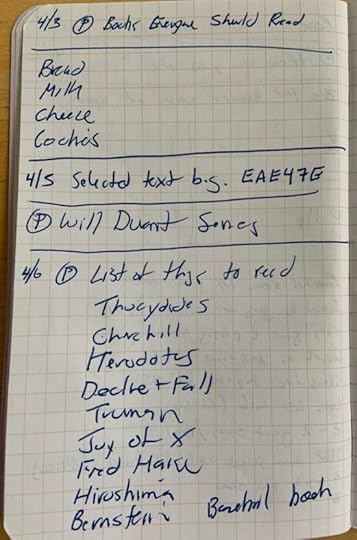 4/3 (P) Books Everyone Should Read
Bread
Milk
Cheese
Cookies
4/5 Selected text b.g. EAE47E
(P) Will Durant Series
4/6 (P) List of things to read
Thucydides
Churchill
Herodotus
Decline + Fall
Truman
Joy of X
Fred Harvey
Hiroshima
Bernstein Baseball book